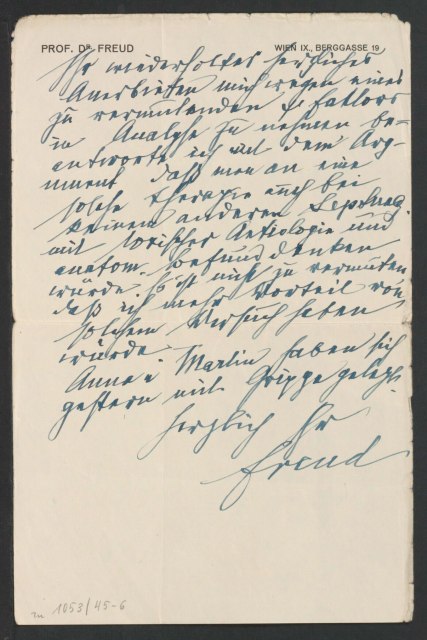 PROF. DR FREUD WIEN IX., BERGGASSE 19
Ihr wiederholtes herzliches
Anerbieten mich wegen eines
zu vermutenden Faktors
in Analyse zu nehmen be=
antworte ich mit dem Arg=
ument, daß man an eine
solche Therapie auch bei
keinem anderen
mit toxischer Aetiologie und
anatom. Befund denken
würde. Es ist nicht zu vermuten
daß ich mehr Vorteil von
solchem Versuch haben
würde.
Anna u Martin haben sich
gestern mit Grippe gelegt.
Herzlich Ihr
Freud
1053/45-6